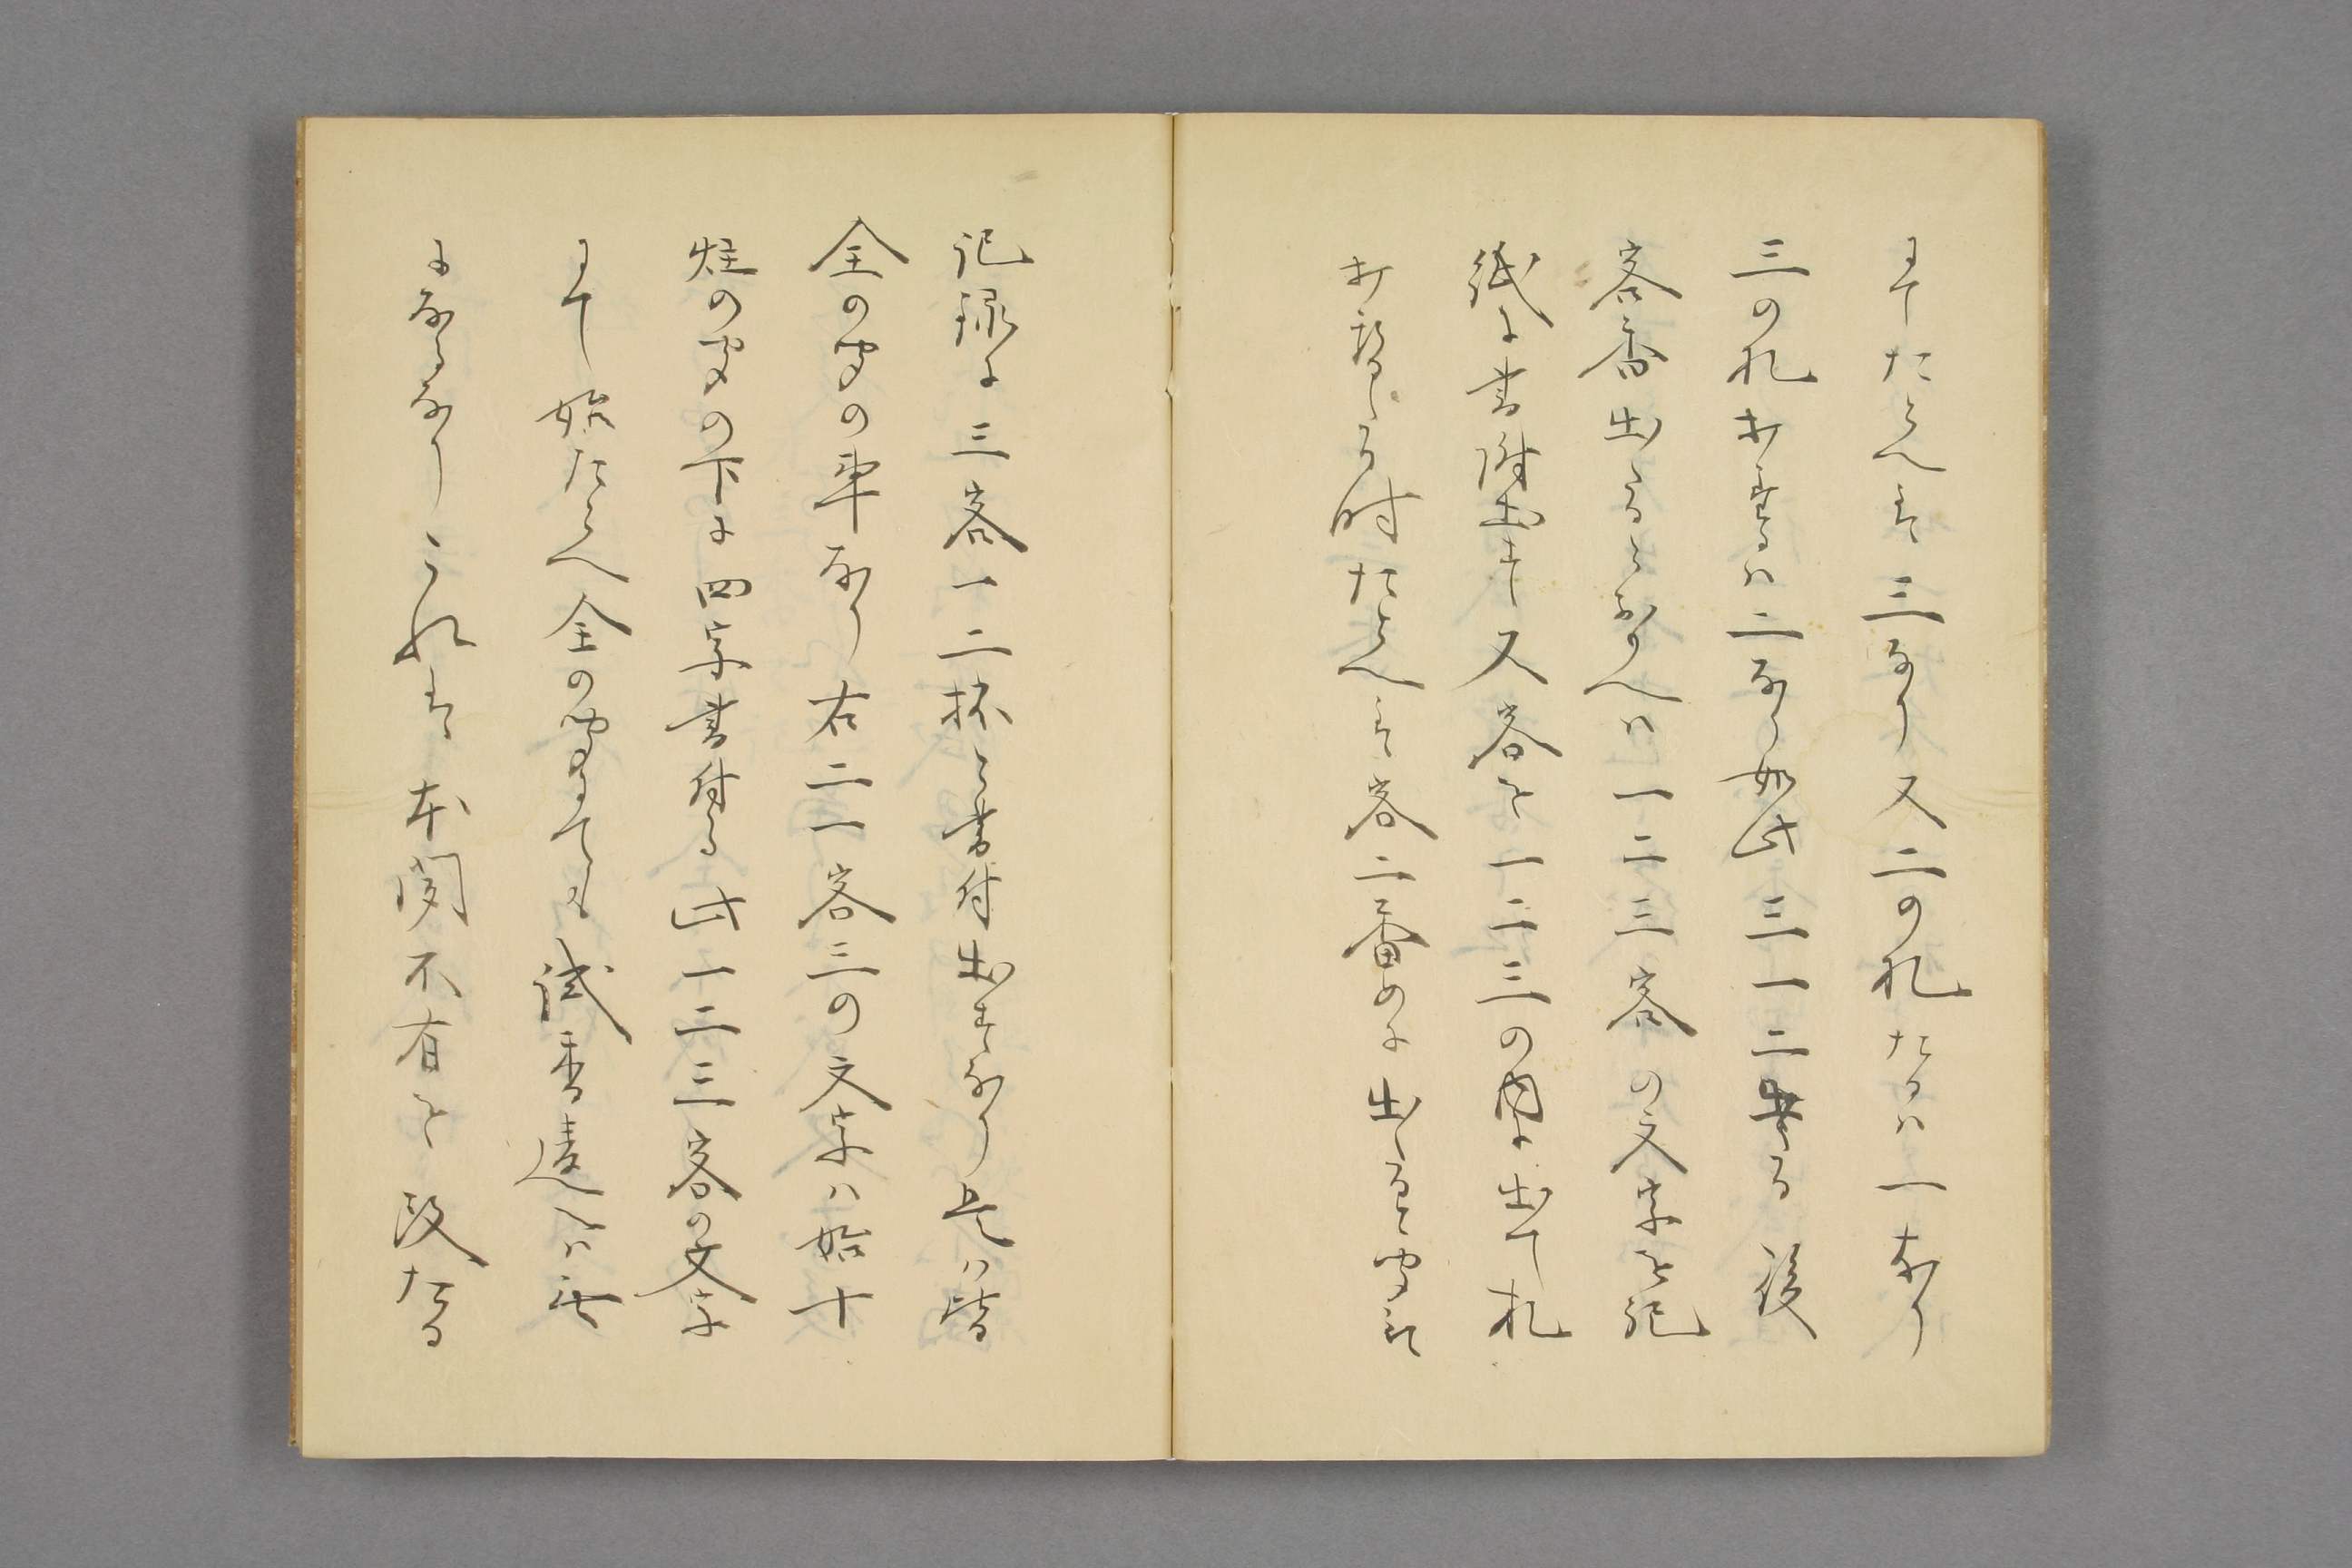 にてたとへは三なり又二の札たるハ一なり
三の札打するハ二なり如此三一二するる後
客香出るとなへハ一二三客の文字を記
紙に書附出す又客を一二三の内に出て札
打替しる時たとへは客二番めに出ると聞
記録に三客一二抔と書付出すなり是ハ皆
全の聞の事なり右二一客三の文字ハ始十
炷の聞の下に四字書付る此一二三客の文字
にて始たとへ全の聞にても試香違へハ無
になるなりこれは本関不有を改たる